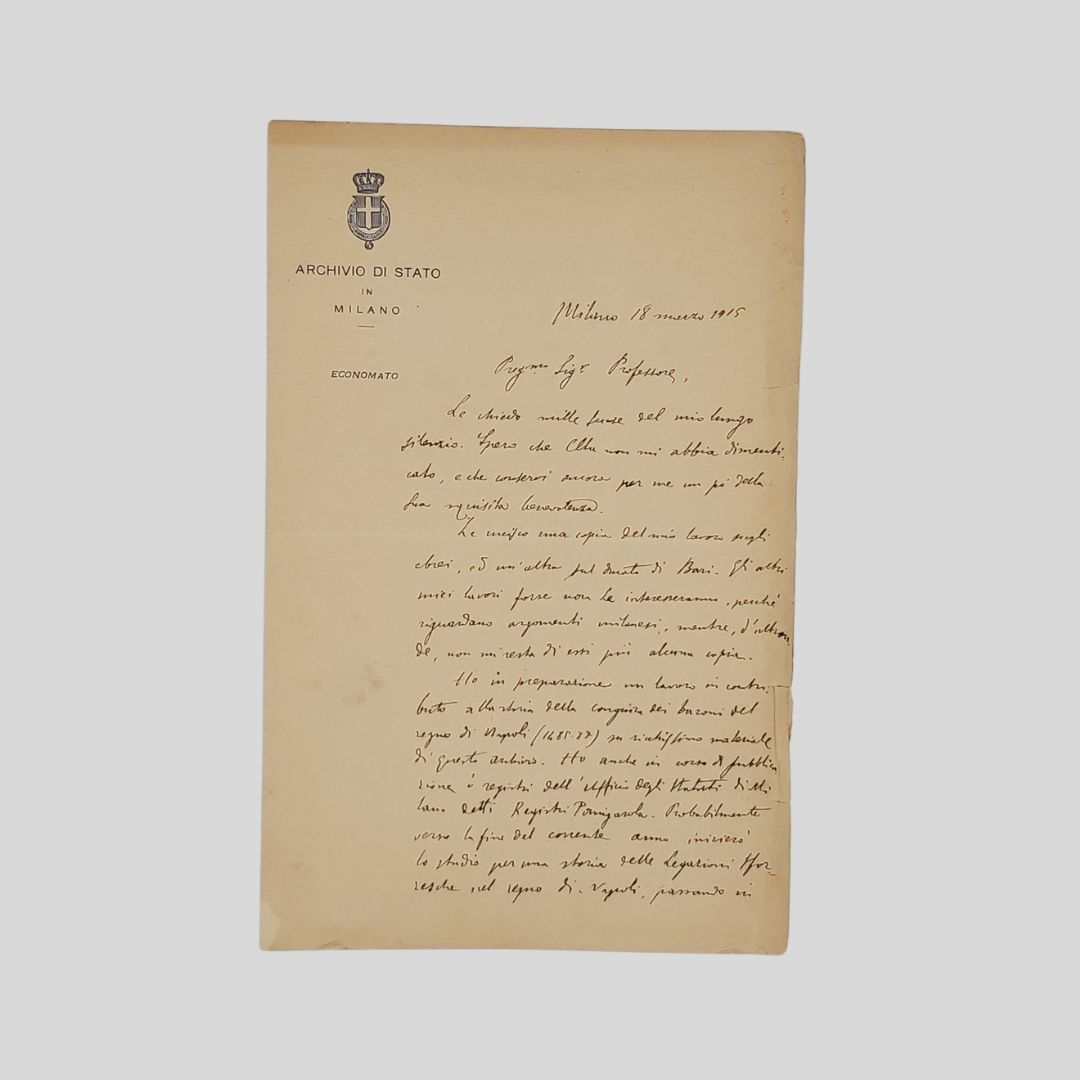 ARCHIVIO DI STATO
IN
MILANO
ECONOMATO
Milano 18 marzo 1915
Preg.mo Sig.r Professore,
Le chiedo mille scuse del mio lungo
silenzio. Spero che Ella non mi abbia dimenti-
cato, e che conservi ancora per me un pò della
Sua squisita benevolenza.
Le unisco una copia del mio lavoro sugli
ebrei, ed un'altra sul ducato di Bari. Gli altri
miei lavori forse non Le interesseranno, perché
riguardano argomenti milanesi, mentre, d'altron
de, non mi resta di essi più alcuna copia.
Ho in preparazione un lavoro in contri-
buto alla storia della congiura dei baroni del
regno di Napoli (1485-87) su ricchissimo materiale
di questo archivio. Ho anche in corso di pubblica
zione i registri dell'Ufficio degli Statuti di Mi
lano detti Registri Panigarola. Probabilmente
verso la fine del corrente anno inizierò
lo studio per una storia delle Legazioni Sfor-
zesche nel regno di Napoli, passando in